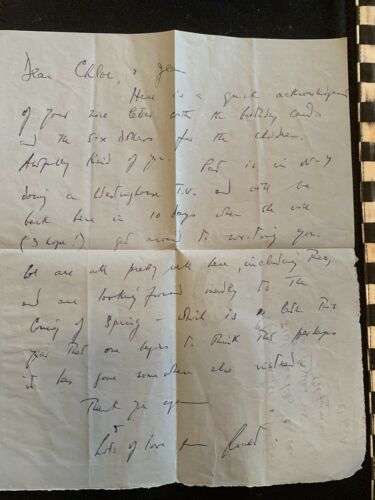 Dear Chloe, & Jean
Here is a quick acknowledgement
of your nice letter with the birthday cards
and the six dollars for the children.
Awfully kind of you. Pat is in N.Y
doing a Westinghouse T.V. and will be
back here in 10 days when she will
(I hope!) get around to writing you.
We are all pretty well here, including
and are looking forward madly to the
Coming of Spring — which is so late this
year that one begins to think that perhaps
it has gone somewhere else instead
Thank you again —
Lots of love from